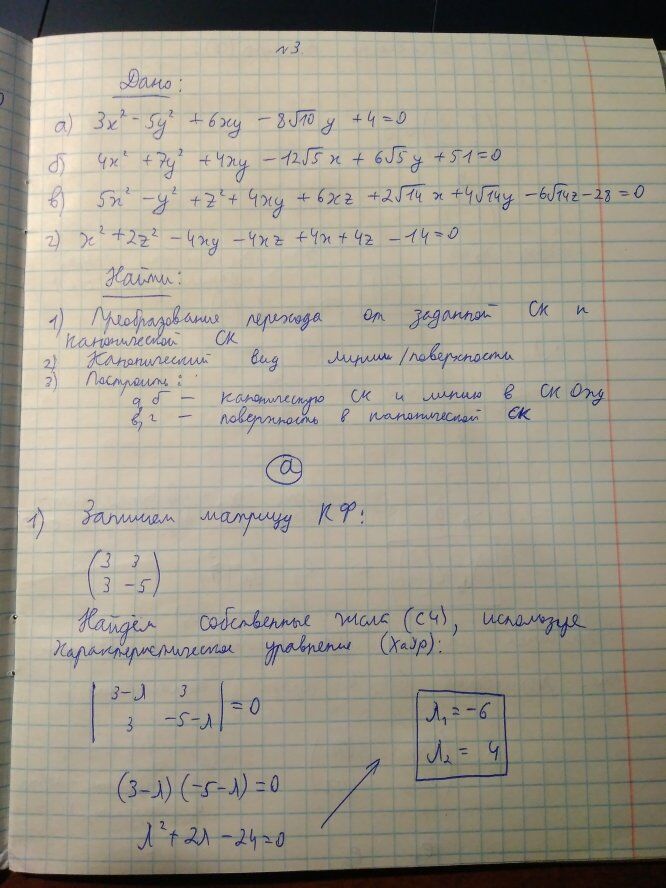 №3.
Дано:
а) 3x² - 5y² + 6xy - 8√10 y + 4 = 0
б) 4x² + 7y² + 4xy - 12√5 x + 6√5 y + 51 = 0
в) 5x² - y² + z² + 4xy + 6xz + 2√14 x + 4√14 y - 6√14 z - 28 = 0
г) x² + 2z² - 4xy - 4xz + 4x + 4z - 14 = 0
Найти:
1) Преобразование перехода от заданной СК к
канонической СК
2) Канонический вид линии/поверхности
3) Построить:
а, б – каноническую СК и линию в СК Oxy
в, г – поверхность в канонической СК
а
1) Запишем матрицу КФ:
(3 3
3 -5)
Найдём собственные числа (СЧ), используя
характеристическое уравнение (ХарУр):
| 3-λ 3
3 -5-λ | = 0
λ₁ = -6
λ₂ = 4
(3-λ)(-5-λ) = 0
λ² + 2λ - 24 = 0